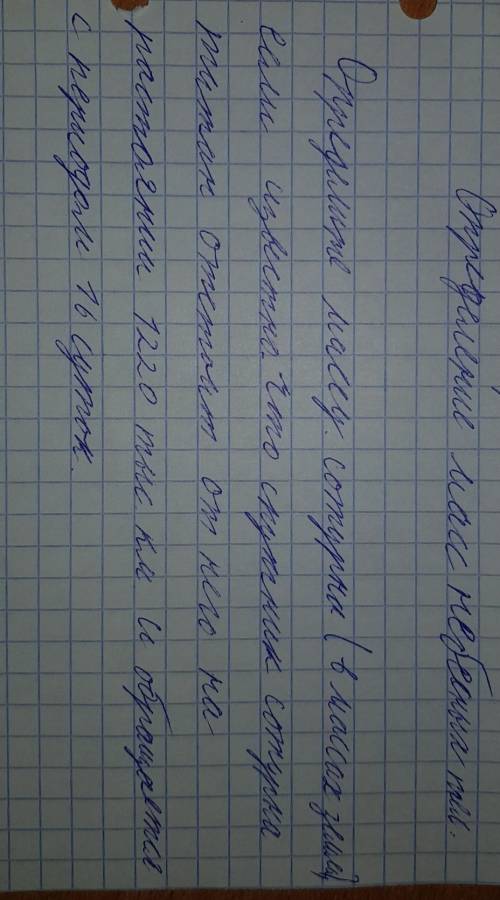 Определение масс небесных тел.
Определите массу сатурна (в массах земли)
если известно что спутник сатурна
титан отстоит от него на
растоянии 1220 тыс. км. и обращается
с периодом 16 суток.